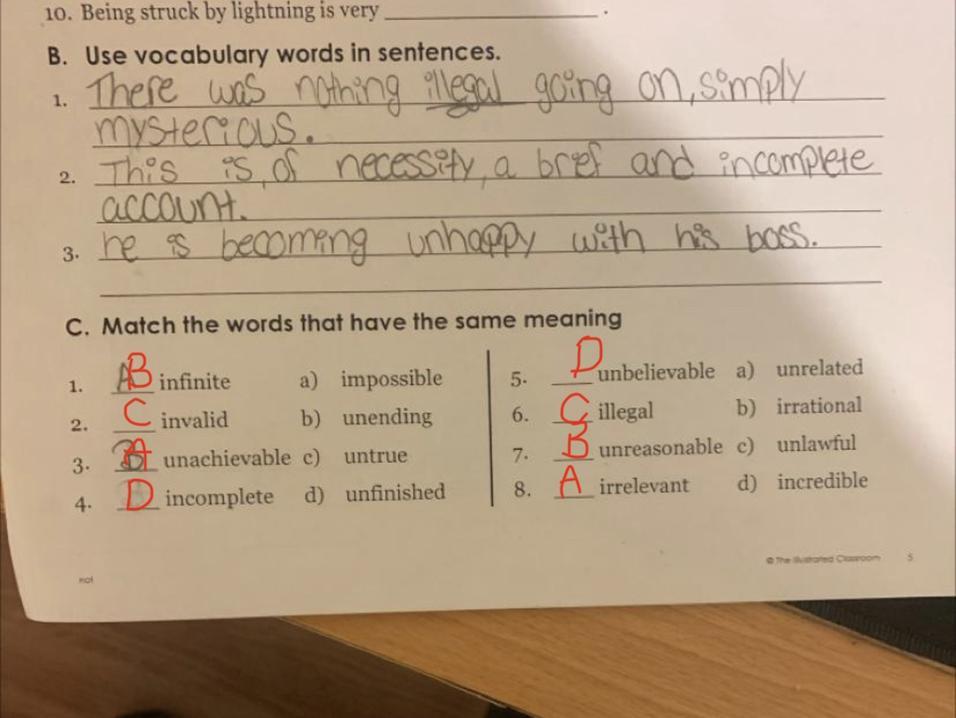 10. Being struck by lightning is very ____________________ .
B. Use vocabulary words in sentences.
1. There was nothing illegal going on, simply
mysterious.
2. This is, of necessity, a brief and incomplete
account.
3. he is becoming unhappy with his boss.
C. Match the words that have the same meaning
1. B infinite a) impossible
2. C invalid b) unending
3. A unachievable c) untrue
4. D incomplete d) unfinished
5. D unbelievable a) unrelated
6. C illegal b) irrational
7. B unreasonable c) unlawful
8. A irrelevant d) incredible
© The Illustrated Classroom 5
not